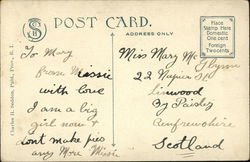 POST CARD.
ADDRESS ONLY
Place
Stamp Here
Domestic
One cent
Foreign
Two cents
To Mary
from Missie
with love
I am a big
girl now &
dont make pies
any More Missie
Miss Mary Mc
22 Napier St
Linwood
By Paisley
Renfrewshire
Scotland